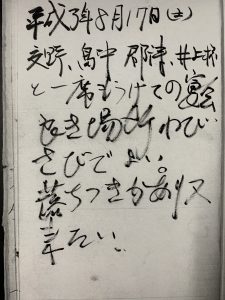 平成3年8月17日(土)
交野、畠中 郡津、井上様
と一席もうけての宴会
良き場所わび
さびでよい。
落ちつきがあり又
来たい、